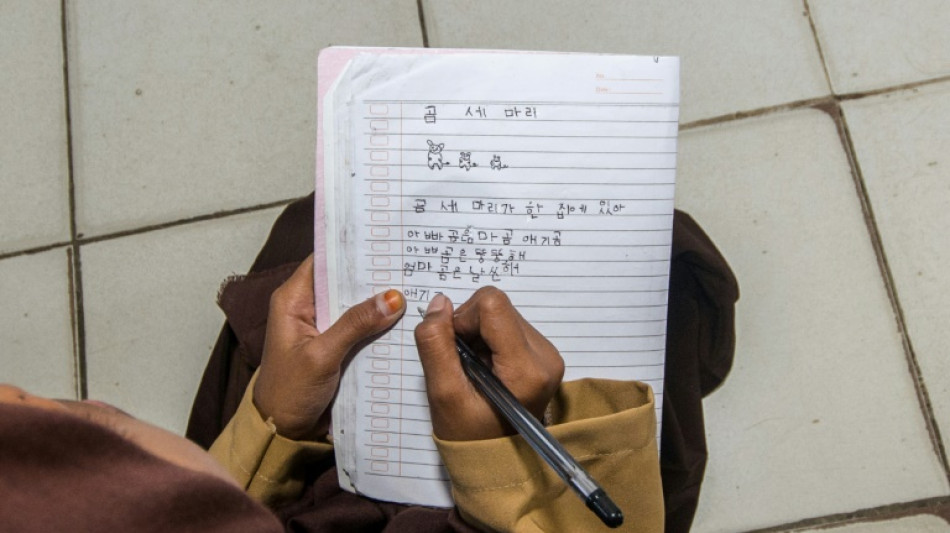 곰 세 마리
곰 세 마리가 한 집에 있아
아빠 곰 마 곰 애기곰
아빠 곰은 뚱뚱해
엄마 곰은 날씬해
애기